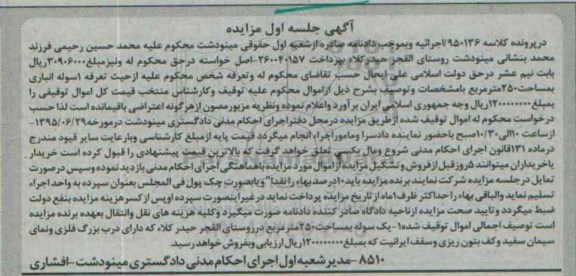 آگهی جلسه اول مزایده
درپرونده کلاسه ۹۵۰۱۳۶/اجرائیه وبموجب دادنامه صادره ازشعبه اول حقوقی مینودشت محکوم علیه محمد حسین رحیمی فرزند
محمد بنشانی مینودشت روستای القجر حیدرکلاء بپرداخت ۲۶۰۰۴۰۱۵۷-اصل خواسته درحق محکوم له ونیزمبلغ ۳۰۹۰۶۰۰۰ریال
بابت نیم عشر درحق دولت اسلامی علی ایحال حسب تقاضای محکوم له وتعرفه شخص محکوم علیه ازحیث تعرفه ۱سوله انباری
بمساحت ۲۵۰مترمربع بامشخصات وتوصیف بشرح ذیل ازاموال محکوم علیه توقیف وکارشناس منتخب قیمت کل اموال توقیفی را
بمبلغ ۱۲۰۰۰۰۰۰۰ریال وجه جمهوری اسلامی ایران برآورد واعلام نموده ونظریه مزبورمصون ازهرگونه اعتراضی باقیمانده است لذا حسب
درخواست محکوم له اموال توقیف شده ازطریق مزایده درمحل دفتراجرای احکام مدنی دادگستری مینودشت درمورخه ۱۳۹۵/۰۶/۲۹-
ازساعت ۱۰الی ۱۰/۳۰صبح باحضور نماینده دادسرا وماموراجراء انجام میگردد قیمت پایه ازمبلغ کارشناسی وبارعایت سایر قیود مندرج
درماده ۱۳۱قانون اجرای احکام مدنی شروع ومال بکسی تعلق خواهد گرفت که بالاترین قیمت پیشنهادی را قبول کرده است خریدار
یاخریداران میتوانند ۵روز قبل ازفروش وتشکیل مزایده ازاموال مورد مزایده باهماهنگی اجرای احکام مدنی بازدید نموده وسپس درصورت
تمایل درجلسه مزایده شرکت نمایند برنده مزایده باید ۱۰درصد بهاء را نقدا" ویابصورت چک پول فی المجلس بعنوان سپرده به واحد اجراء
تسلیم نماید والباقی بهاء را حداکثر ظرف ۱ماه از تاریخ مزایده پرداخت نماید درغیراینصورت سپرده اوپس از کسرهزینه مزایده بنفع دولت
ضبط میگردد وتایید صحت مزایده ازناحیه دادگاه صادر کننده دادنامه صورت میگیرد وکلیه هزینه های نقل وانتقال بعهده برنده مزایده
است توصیف اجمالی اموال توقیف شده ۱-یک سوله بمساحت ۲۵۰مترمربع درروستای القجر حیدر کلاء که دارای درب بزرگ فلزی ونمای
سیمان سفید وکف بتون ریزی وسقف ایرانیت که بمبلغ ۱۲۰۰۰۰۰۰۰ریال ارزیابی وبفروش خواهد رسید.
۸۵۱۰-مدیرشعبه اول اجرای احکام مدنی دادگستری مینودشت-افشاری